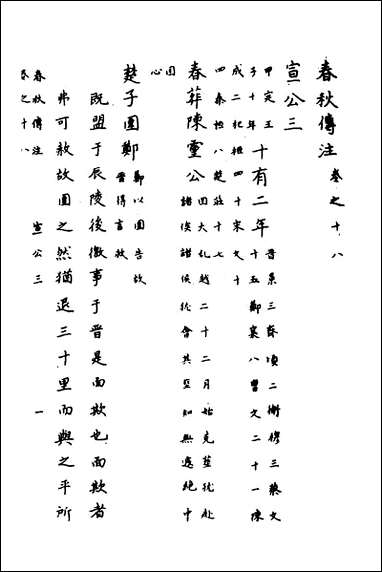 春秋傳注 卷之十八
宣公三
甲子定王十年十有二年 晉景三齊頃二衛穆三蔡文十五鄭襄八曹文二十一陳
成二杞桓四十宋文十四秦桓八楚莊十七
春葬陳靈公 國大亂越二十二月始克葬赴諸侯諸侯會其知無遠絕中
國心
楚子圍鄭 鄭以圍告故晉得言救
既盟于辰陵後徼事于晉是面欺也面欺者
弗可赦故圍之然猶退三十里而與之平所
春秋傳注 宣公三 一
卷之十八